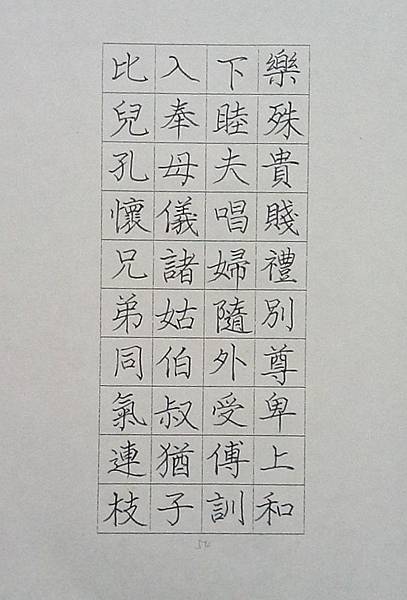 樂殊貴賤禮別尊卑上和
下睦夫唱婦隨外受傅訓
入奉母儀諸姑伯叔猶子
比兒孔懷兄弟同氣連枝